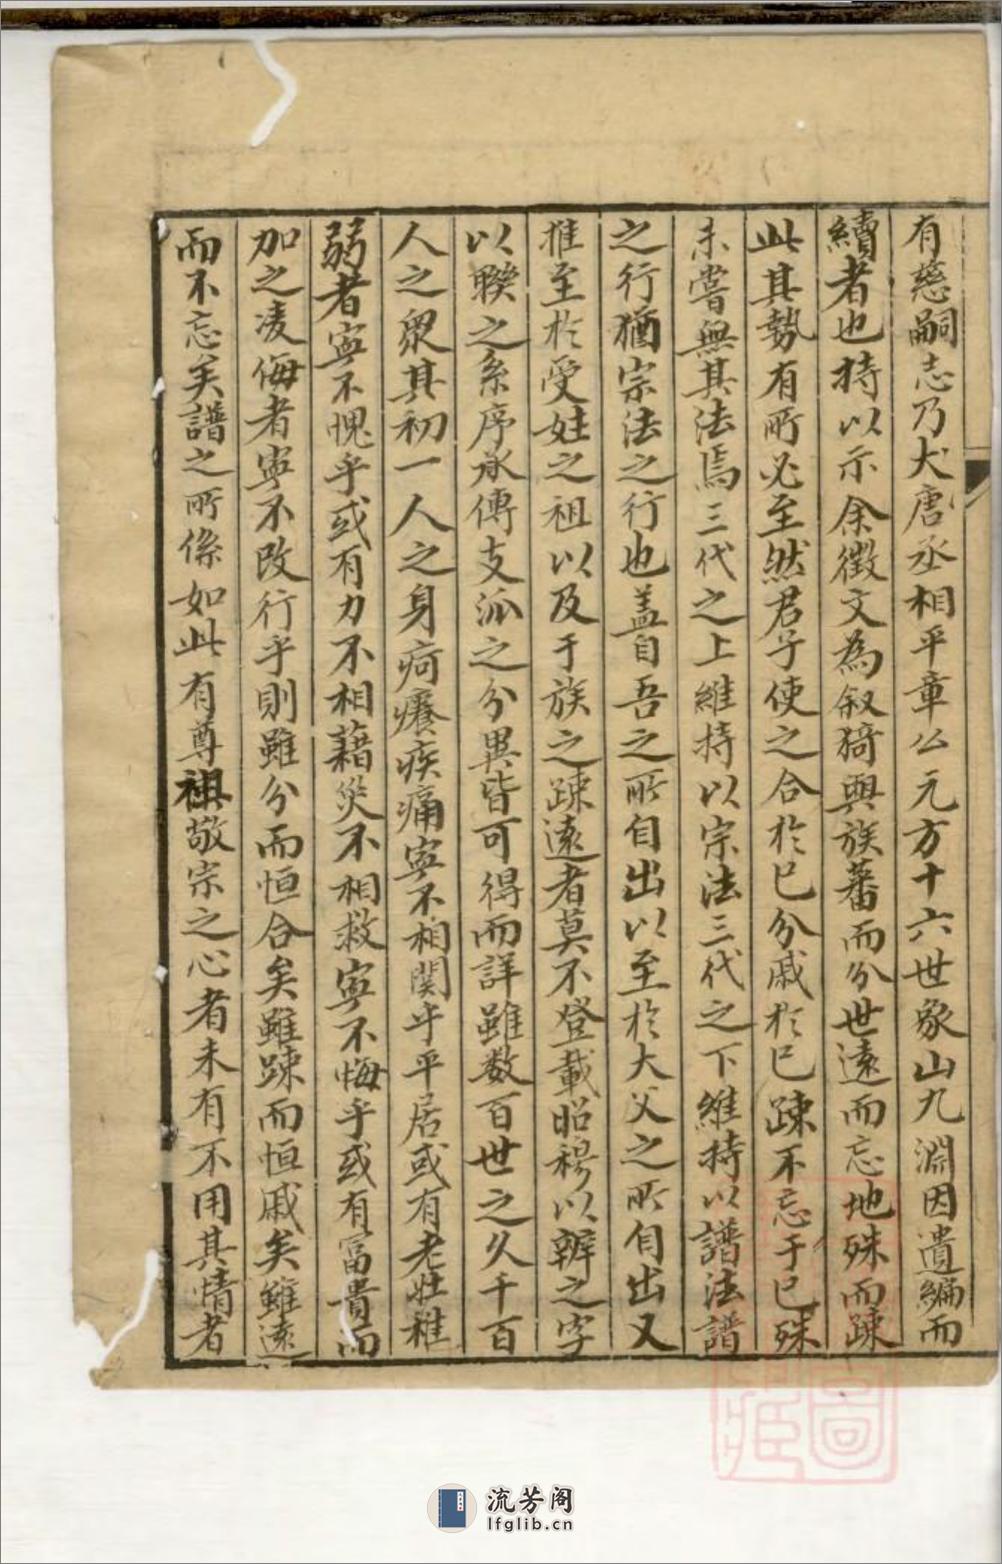 有慈嗣志乃大唐丞相平章公元方十六世象山九淵因遺編而
續者也持以示余徵文為叙猗與族蕃而分世遠而忘地殊而踈
此其勢有所必至然君子使之合於已分戚於已踈不忘于已殊
未嘗無其法焉三代之上維持以宗法三代之下維持以譜法譜
之行猶宗法之行也盖自吾之所自出以至於大父之所自出又
推至於受姓之祖以及于族之踈遠者莫不登載昭穆以辨之字
以聮之系序承傳支派之分異皆可得而詳雖数百世之久千百
人之衆其初一人之身疴癢疾痛寧不相関乎平居或有老壮稚
弱者寧不愧乎或有力不相藉災不相救寧不悔乎或有富貴而
加之凌侮者寧不改行乎則雖分而恒合矣雖踈而恒戚矣雖遠
而不忘矣譜之所係如此有尊祖敬宗之心者未有不用其情者
圖
流芳阁
lfglib.cn